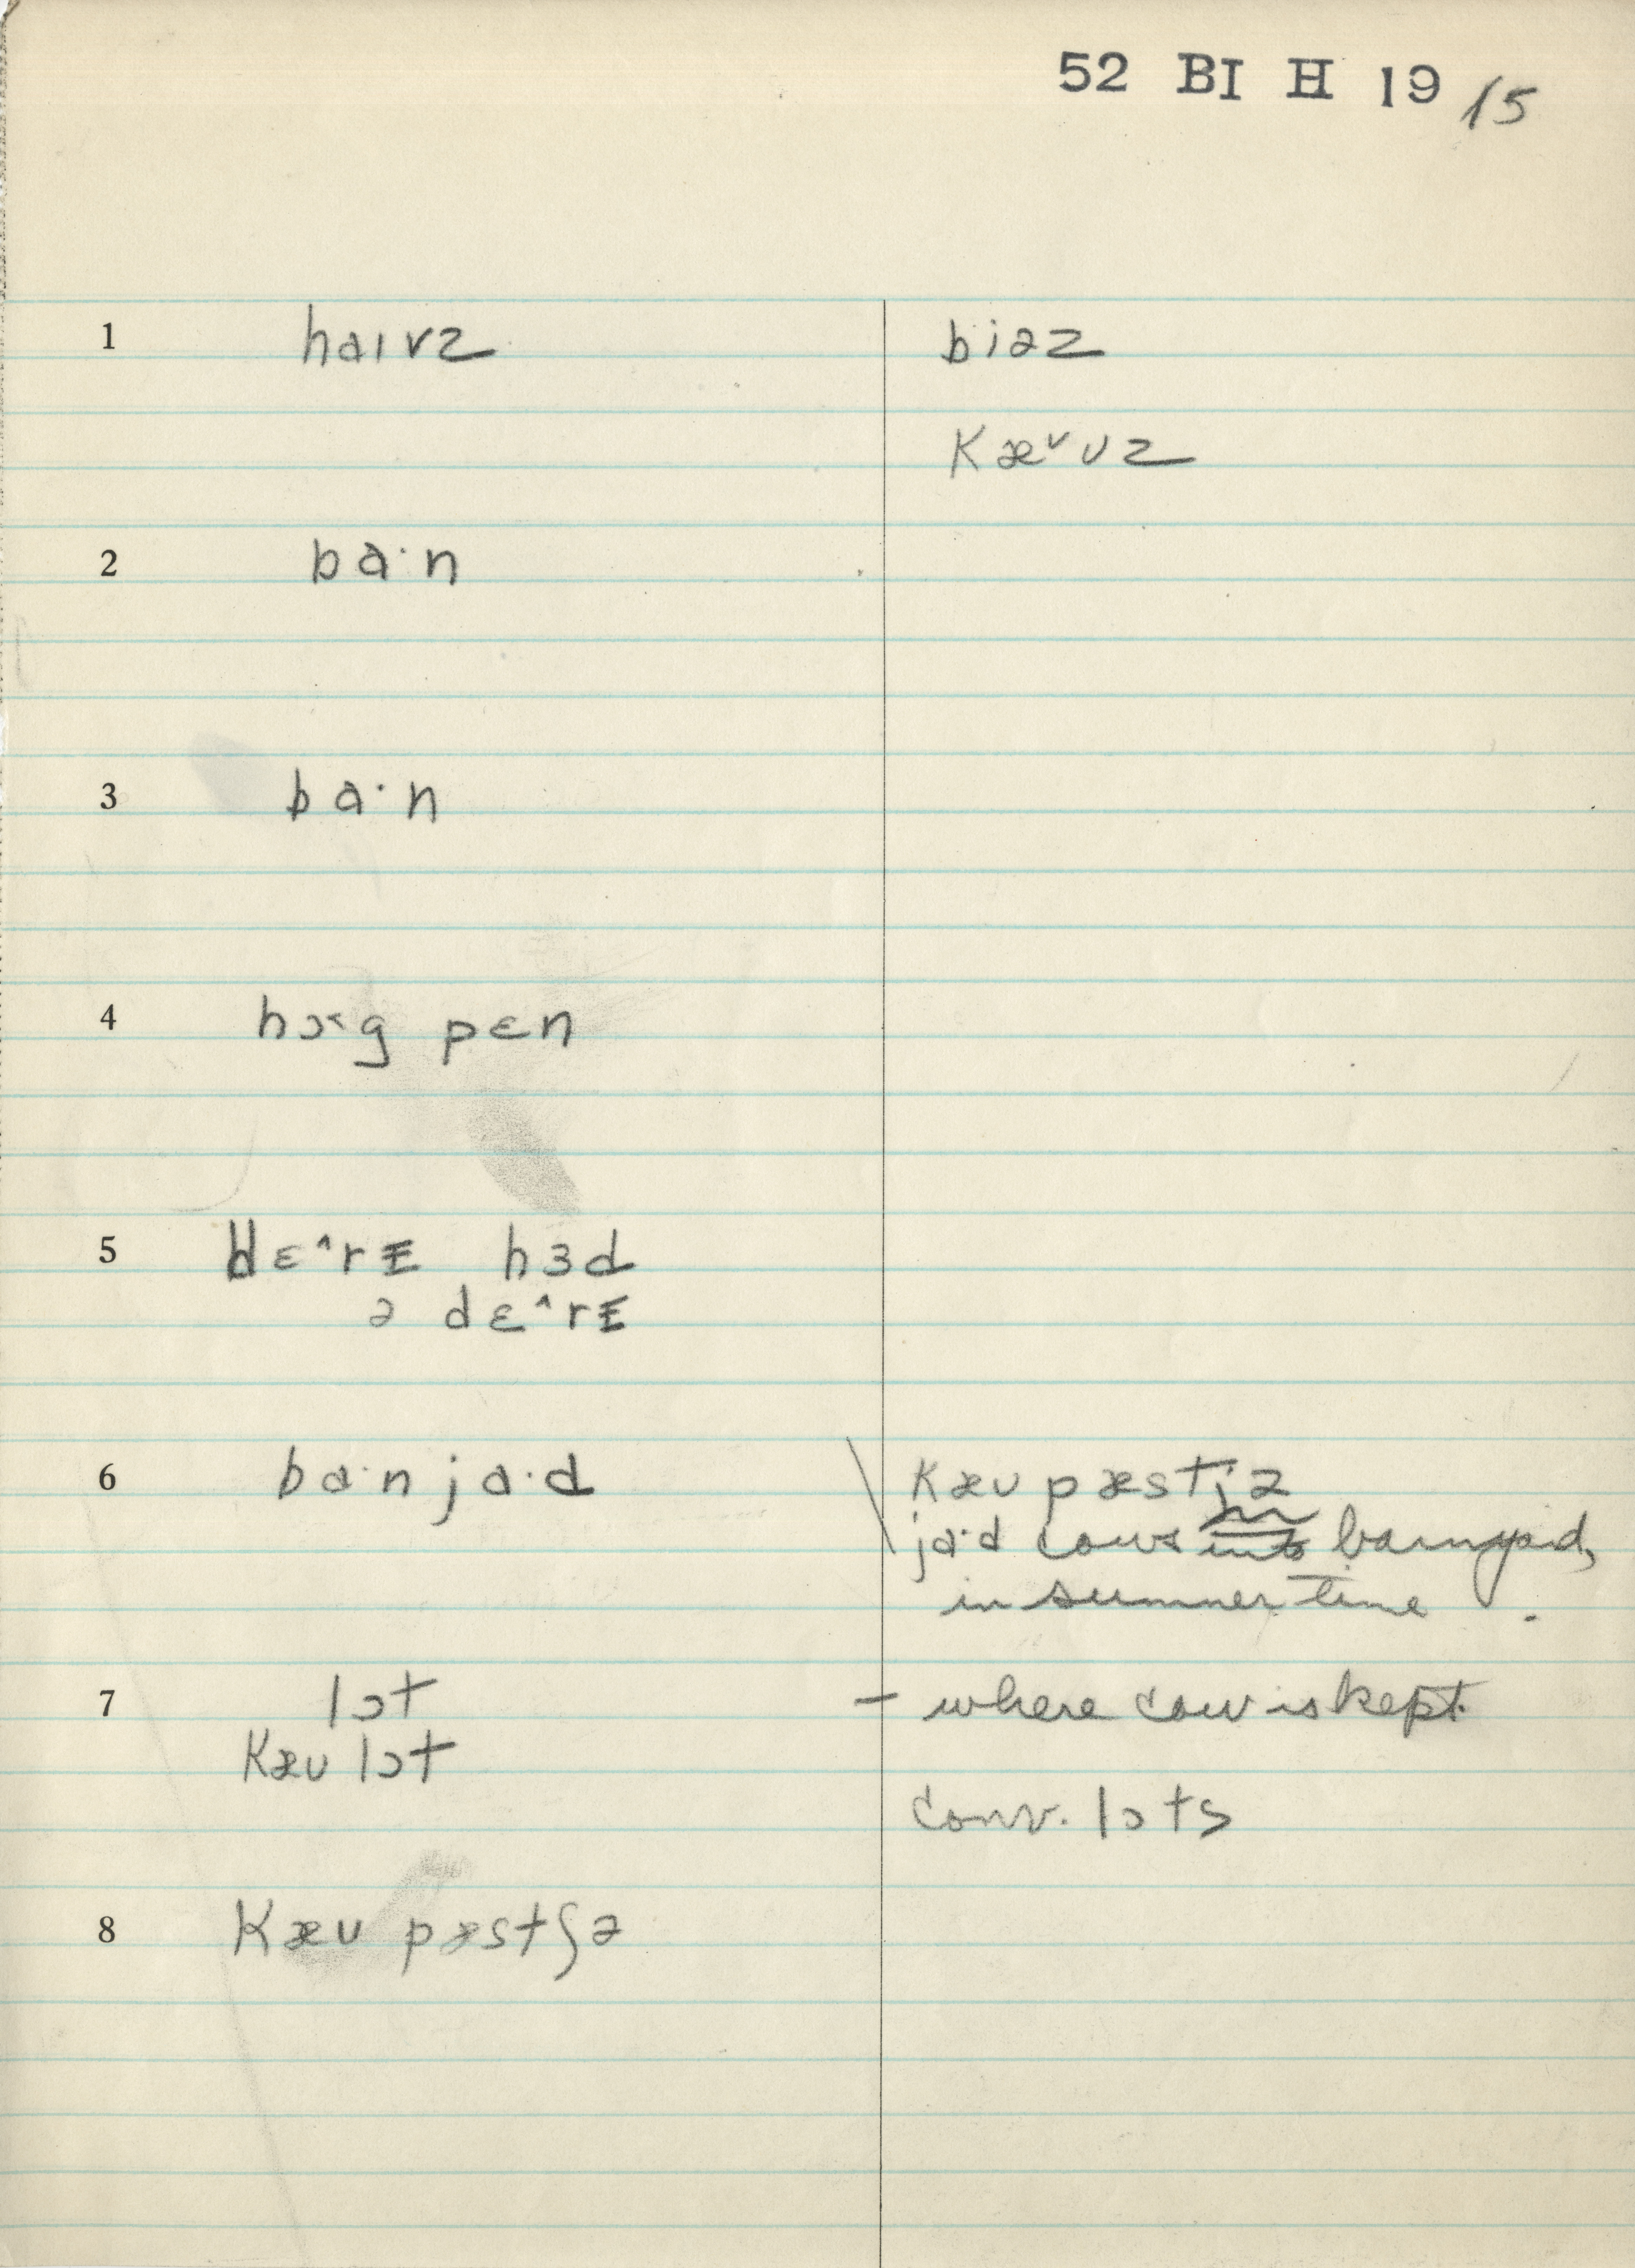 52 BI H 19 15
1 haɪvz biəz
Kæ˅ʊz
2 ba·n
3 ba·n
4 hɔ˂g pɛn
5 dɛ^rɪ hɜd
ə dɛ^rɪ
6 ba·n ja·d Kæʊ pæstjə
ja·d cows in barnyard,
in summer time.
7 lɔt – where cow is kept
Kæʊ lɔt
conv. lɔts
8 Kæʊ pæstʃə